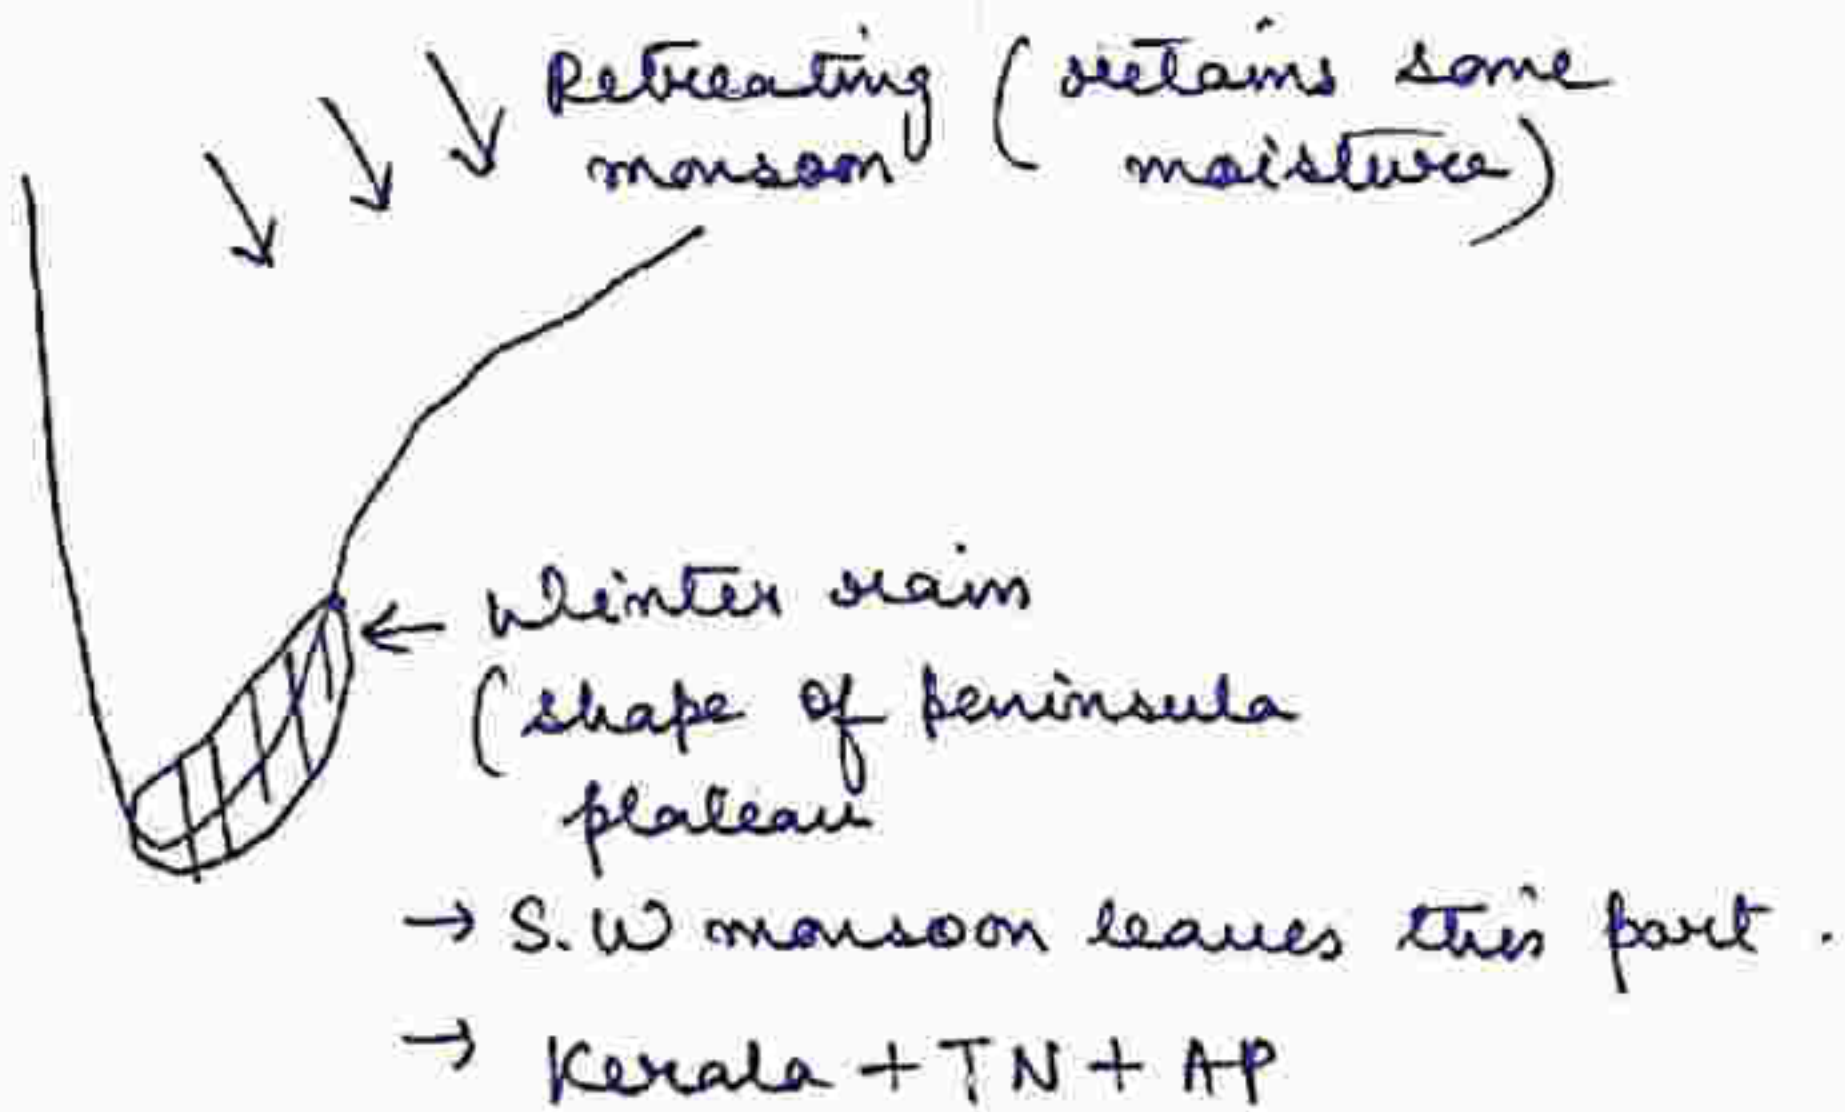 Retreating (retains some
monsoon moisture)
Winter rain
(shape of peninsula
plateau
→ S.W monsoon leaves this part.
→ Kerala + TN + AP